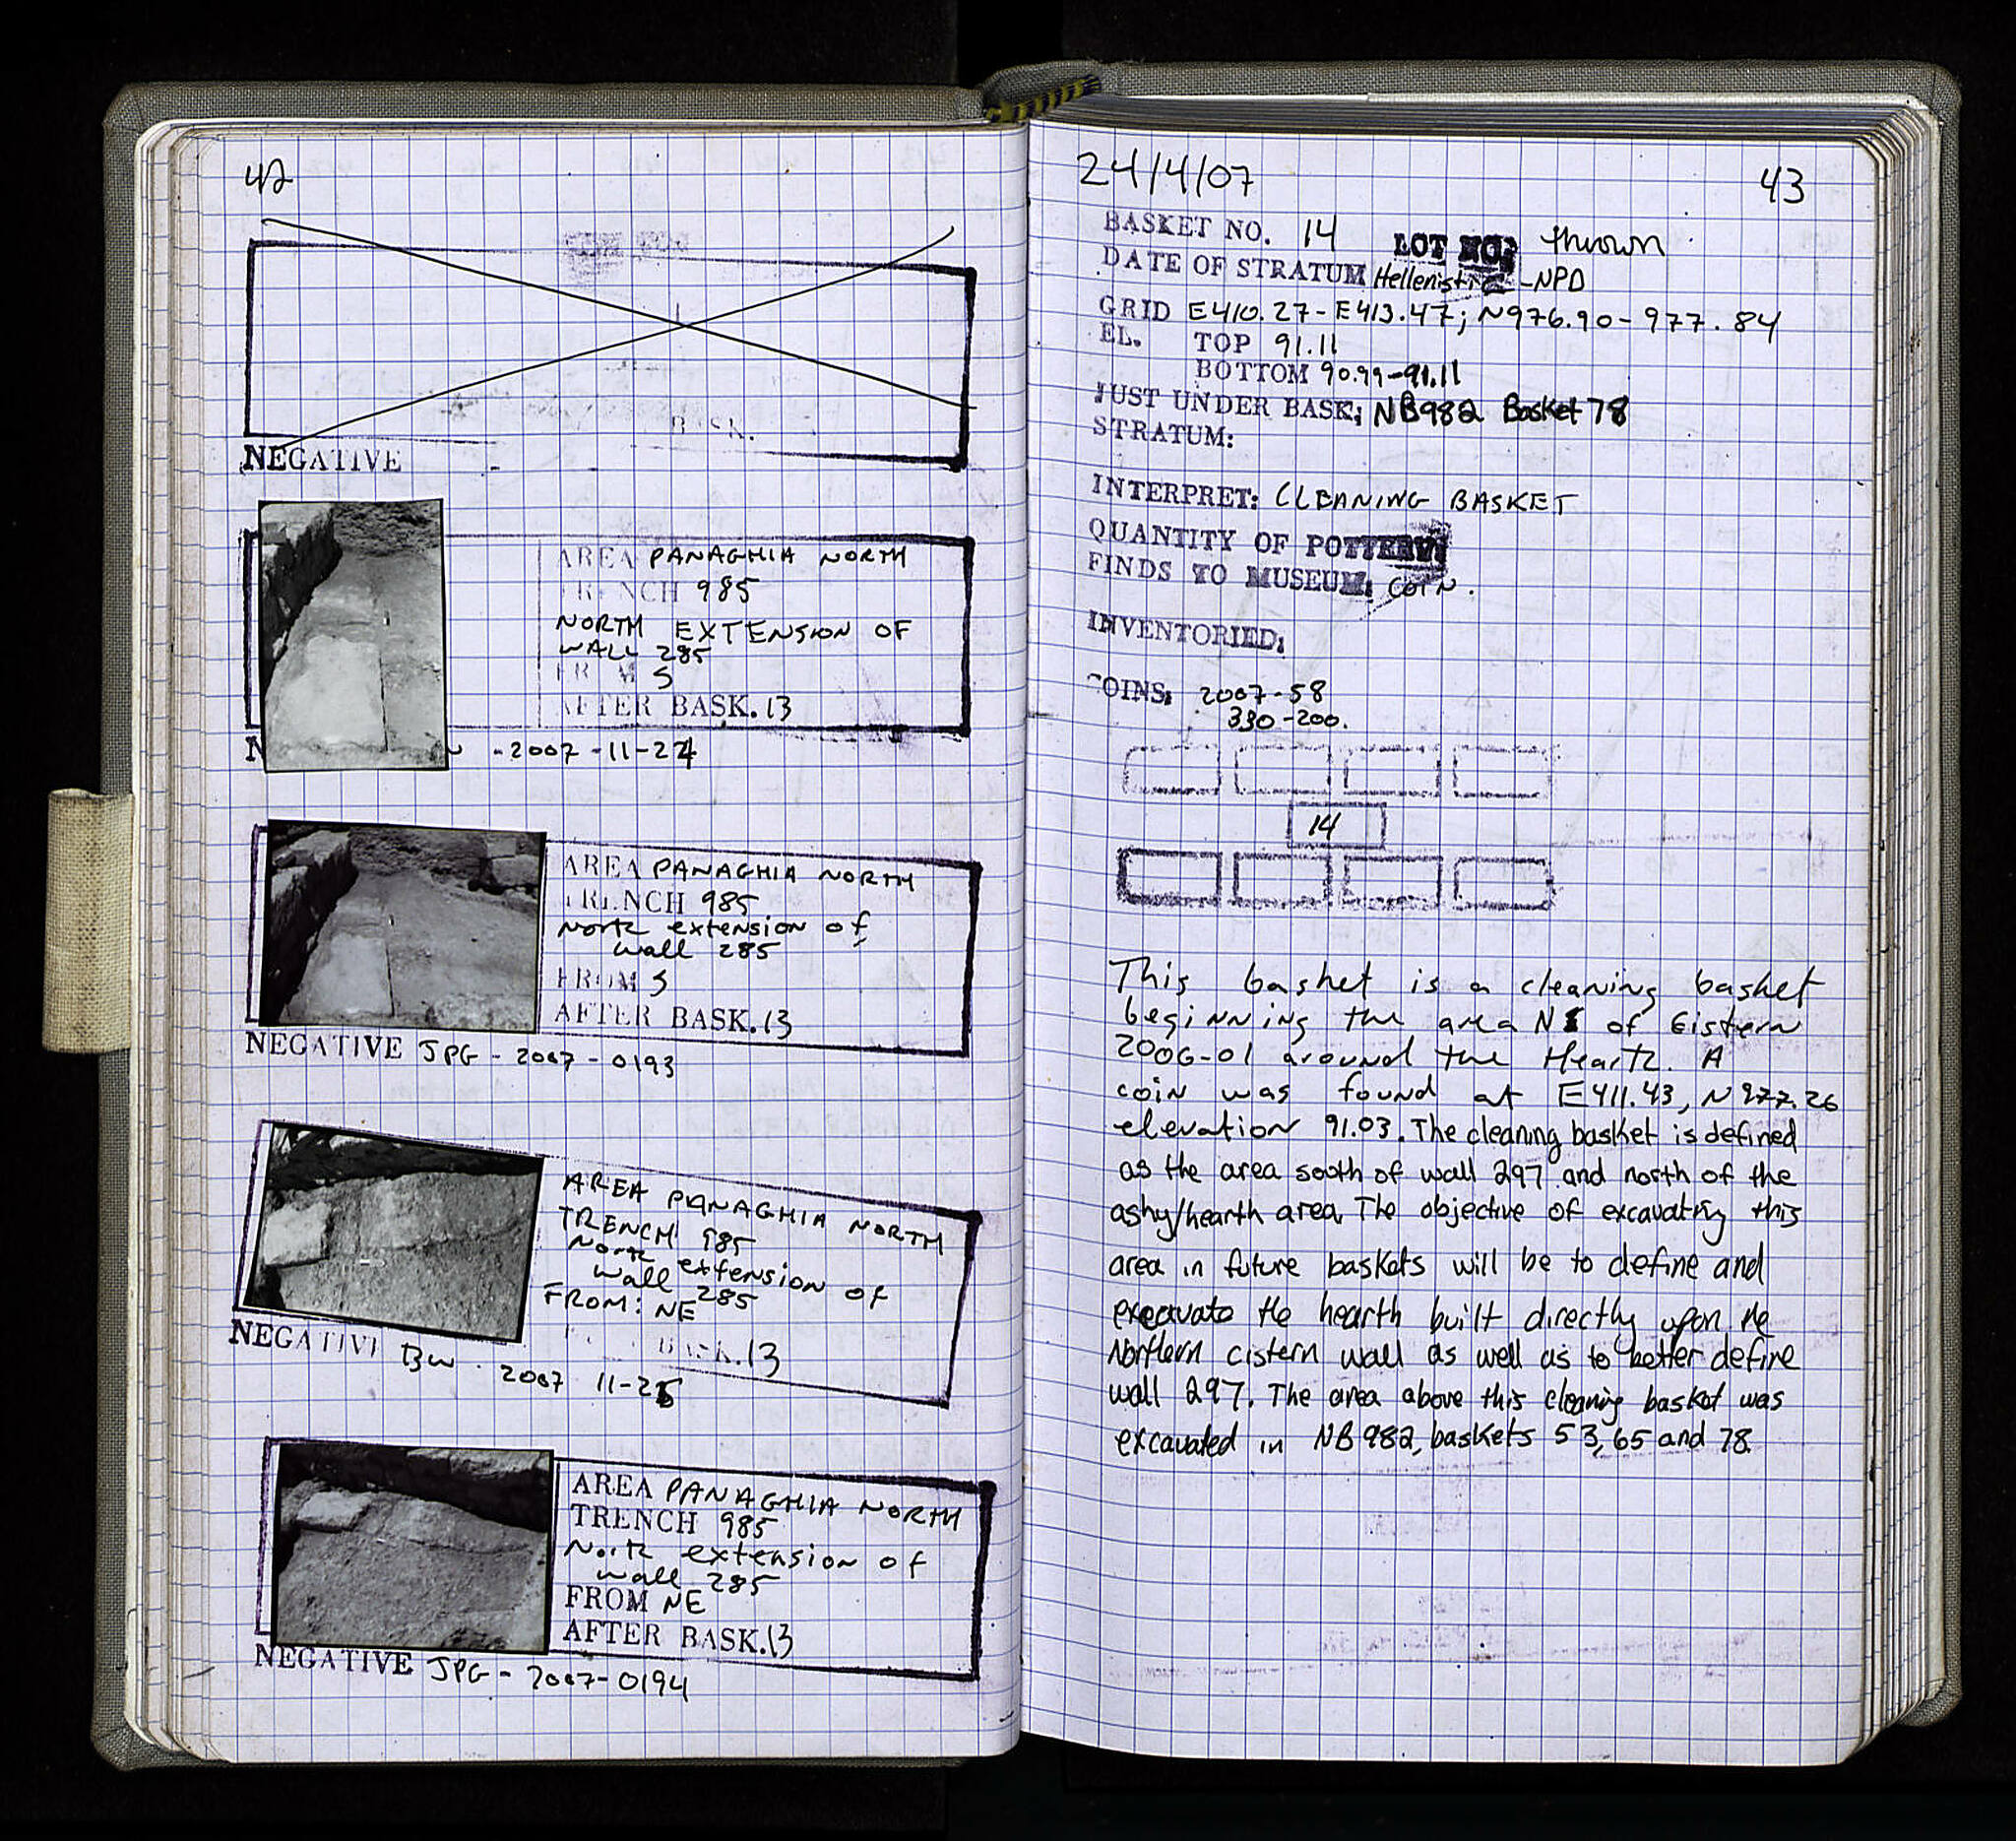 42
NEGATIVE
AREA PANAGHIA NORTH
TRENCH 985
NORTH EXTENSION OF
WALL 285
FROM S
AFTER BASK. 13
- 2007 - 11-24
AREA PANAGHIA NORTH
TRENCH 985
North extension of
wall 285
FROM S
AFTER BASK. 13
NEGATIVE JPG - 2007 - 0193
AREA PANAGHIA NORTH
TRENCH 985
North extension of
wall 285
FROM: NE
BASK. 13
NEGATIVE BW - 2007 11-25
AREA PANAGHIA NORTH
TRENCH 985
North extension of
wall 285
FROM NE
AFTER BASK. 13
NEGATIVE JPG - 2007-0194
24/4/07 43
BASKET NO. 14 LOT NO: thrown
DATE OF STRATUM Hellenistic -NPD
GRID E410.27-E413.47; N976.90-977.84
EL. TOP 91.11
BOTTOM 90.99-91.11
JUST UNDER BASK: NB982 Basket 78
STRATUM:
INTERPRET: CLEANING BASKET
QUANTITY OF POTTERY:
FINDS TO MUSEUM: COIN.
INVENTORIED:
COINS: 2007-58
330-200.
14
This basket is a cleaning basket
beginning the area N of Cistern
2006-01 around the Hearth. A
coin was found at E411.43, N977.26
elevation 91.03. The cleaning basket is defined
as the area south of wall 297 and north of the
ashy/hearth area. The objective of excavating this
area in future baskets will be to define and
excavate the hearth built directly upon the
Northern cistern wall as well as to better define
wall 297. The area above this cleaning basket was
excavated in NB 982, baskets 53, 65 and 78.